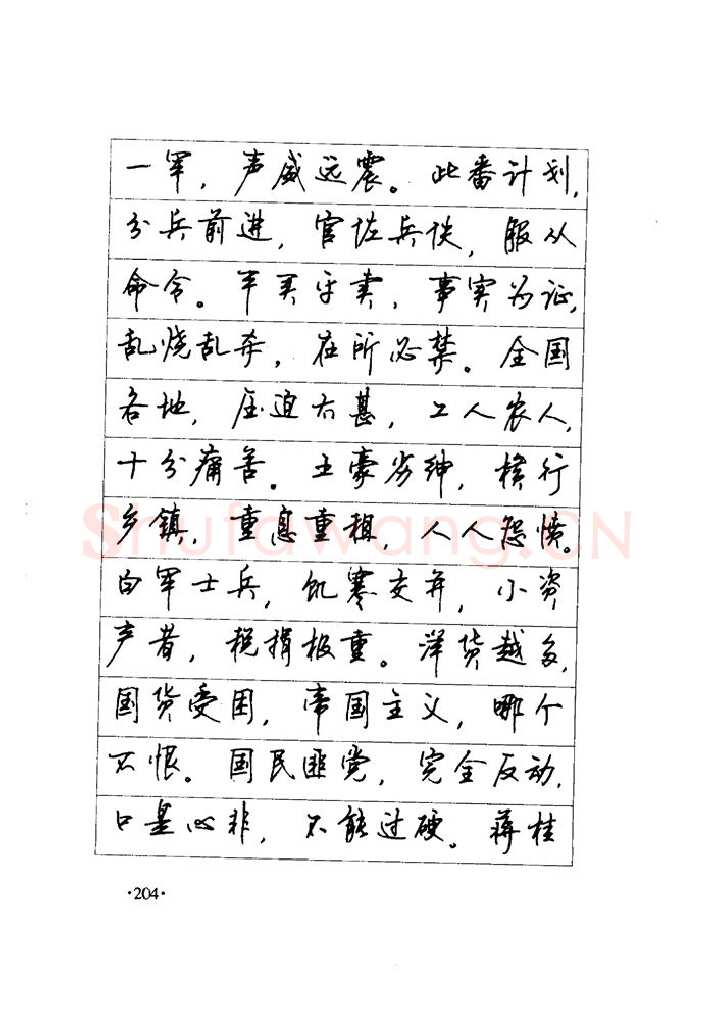 一军，声威远震。此番计划，
分兵前进，官佐兵伕，服从
命令。平买平卖，事实为证，
乱烧乱杀，在所必禁。全国
各地，压迫太甚，工人农人，
十分痛苦。土豪劣绅，横行
乡镇，重息重租，人人怨愤。
白军士兵，饥寒交并，小资
产者，税捐极重。洋货越多，
国货受困，帝国主义，哪个
不恨。国民匪党，完全反动，
口是心非，不能过硬。蒋桂
·204·
Shufawang.CN